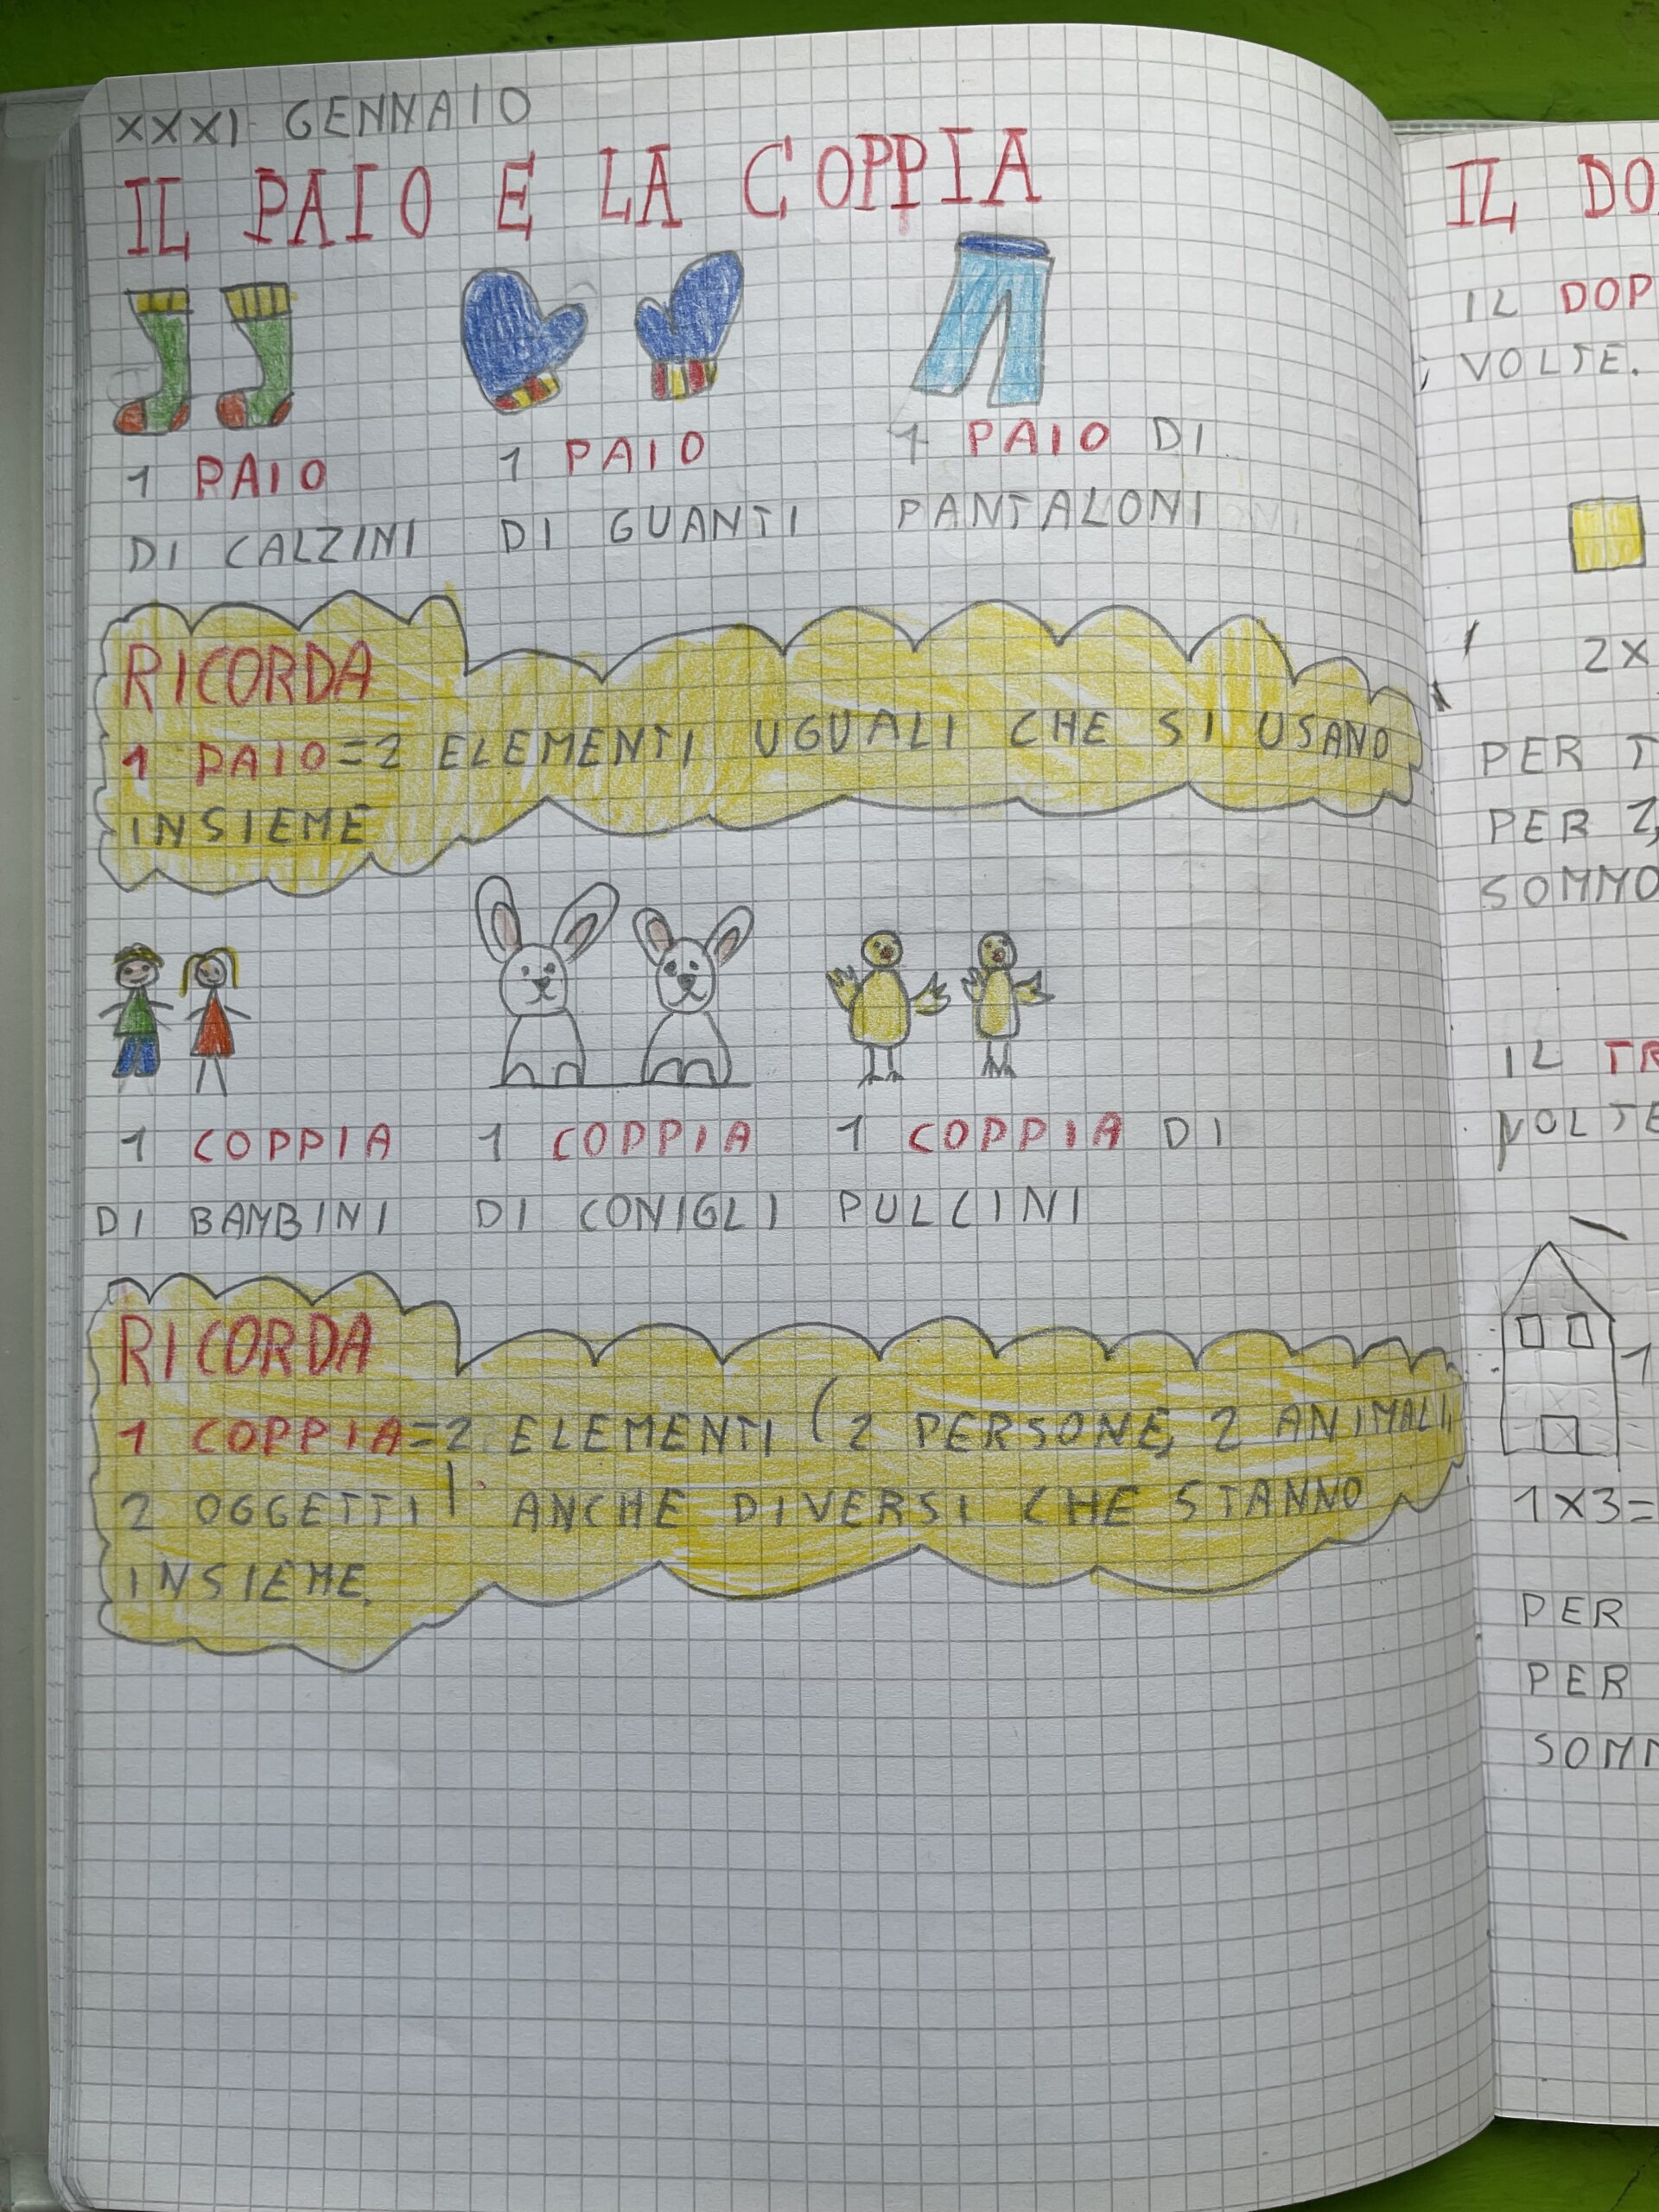 XXXI GENNAIO
IL PAIO E LA COPPIA
1 PAIO
DI CALZINI
1 PAIO
DI GUANTI
1 PAIO DI
PANTALONI
RICORDA
1 PAIO=2 ELEMENTI UGUALI CHE SI USANO
INSIEME
1 COPPIA
DI BAMBINI
1 COPPIA
DI CONIGLI
1 COPPIA DI
PULCINI
RICORDA
1 COPPIA=2 ELEMENTI (2 PERSONE, 2 ANIMALI,
2 OGGETTI) ANCHE DIVERSI CHE STANNO
INSIEME.
IL DO
IL DOP
VOLTE.
2X
PER T
PER 2,
SOMMO
IL TR
VOLTE
1
1X3=
PER
PER
SOMM